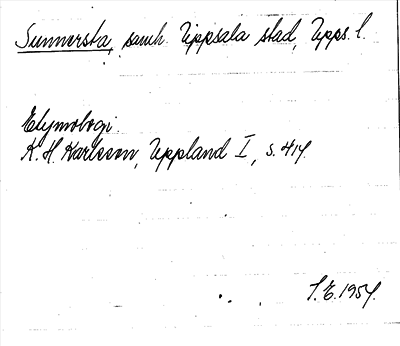 Sunnersta, samh. Uppsala stad, Upps. l.
Etymologi.
K. H. Karlsson, Uppland I, s. 414.
S.E. 1954.